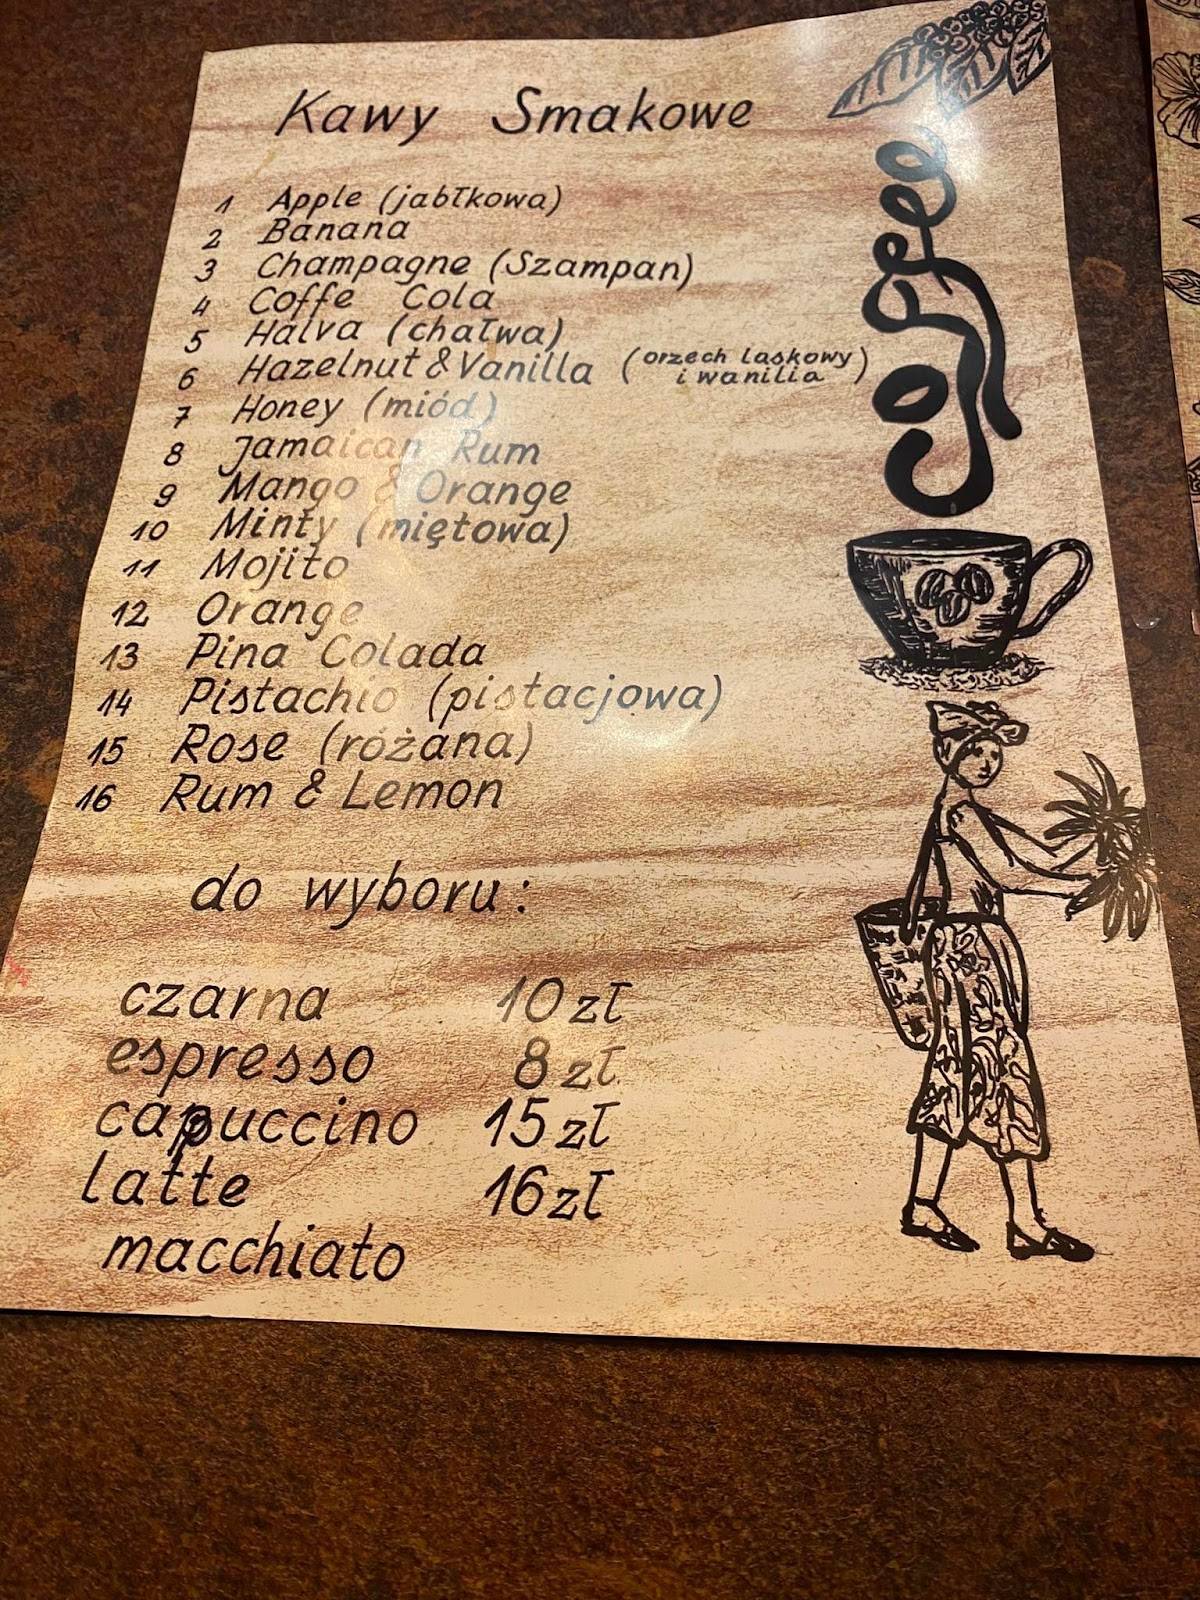 Kawy Smakowe
1 Apple (jabłkowa)
2 Banana
3 Champagne (Szampan)
4 Coffe Cola
5 Halva (chałwa)
6 Hazelnut & Vanilla (orzech laskowy
i wanilia)
7 Honey (miód)
8 Jamaican Rum
9 Mango & Orange
10 Minty (miętowa)
11 Mojito
12 Orange
13 Pina Colada
14 Pistachio (pistacjowa)
15 Rose (różana)
16 Rum & Lemon
do wyboru:
czarna 10 zł
espresso 8 zł
capuccino 15 zł
latte 16 zł
macchiato
coffee